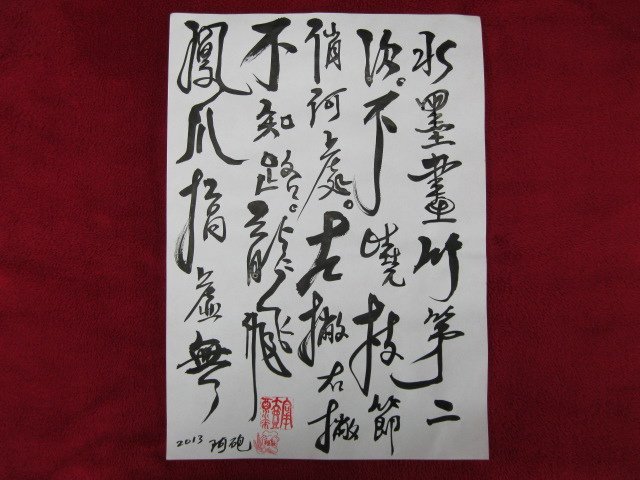 水墨畫竹第二
次。不曉枝節
俏何處。左撇右撇
不知路。龍飛
鳳爪捎虛無
2013 阿砲